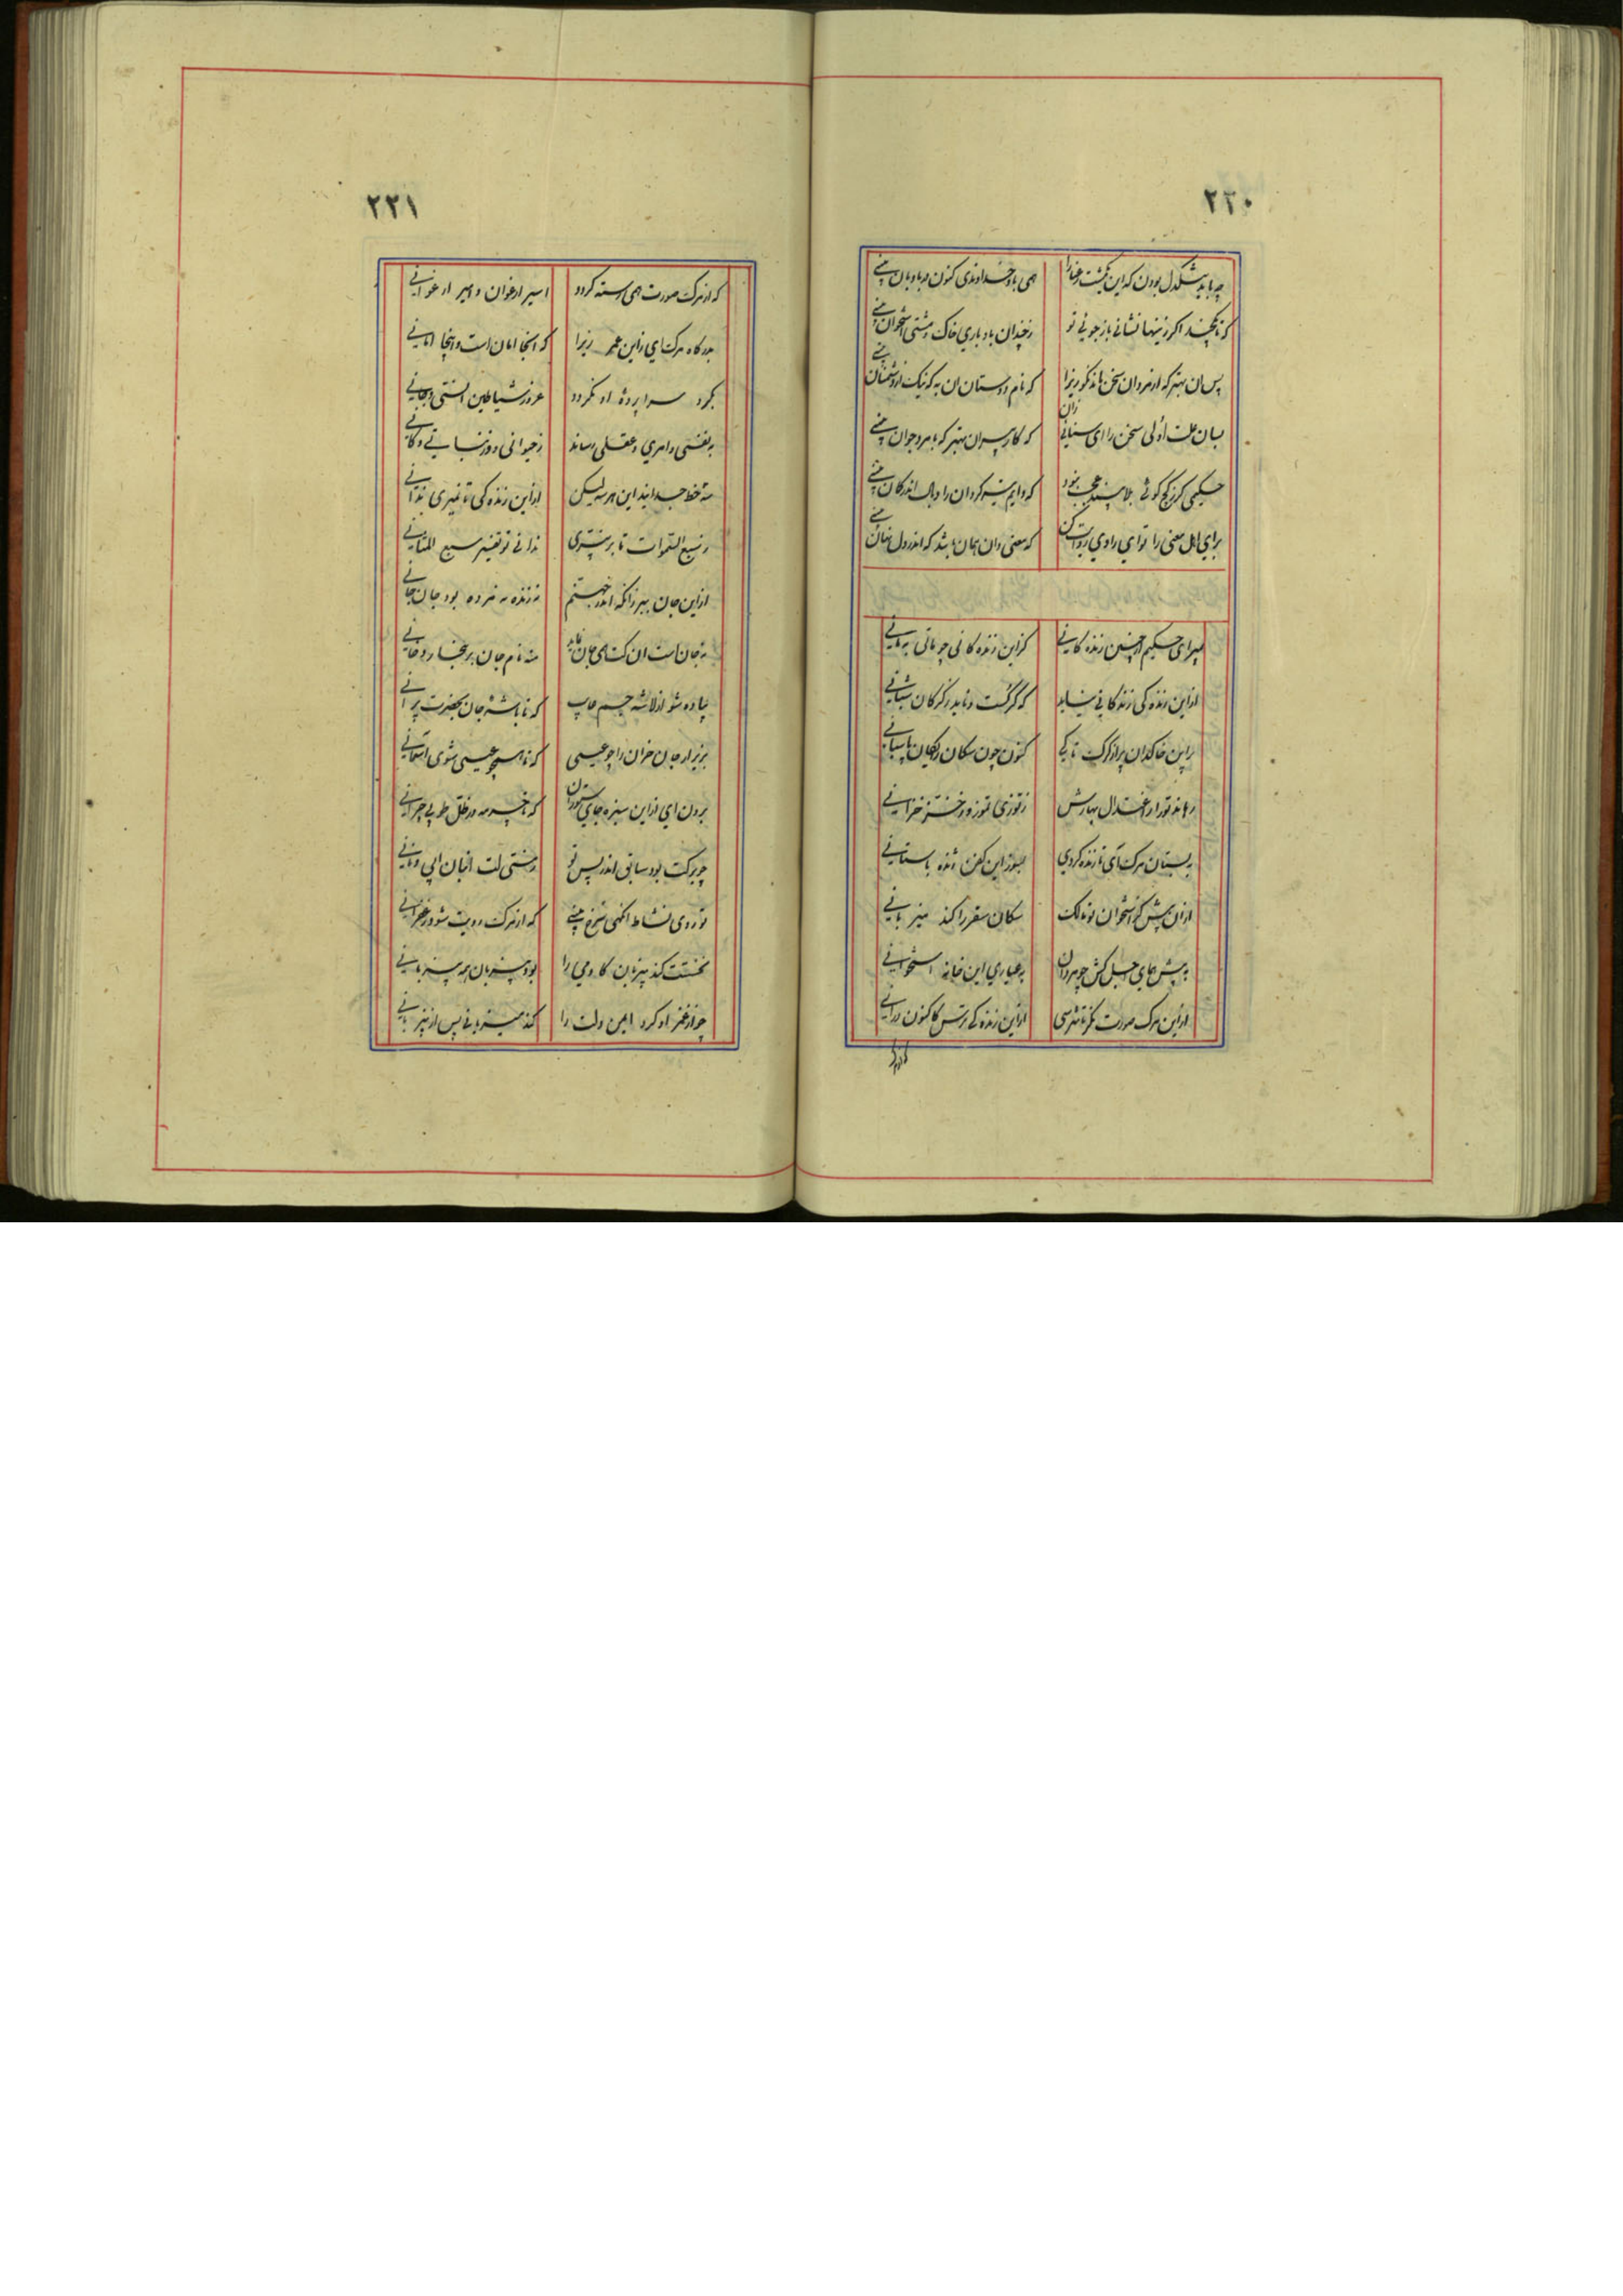 ۲۲۰
چه باید تنگدل بودن که این یکمشت رعنا را
همی باد خداوندی کنون در بادبان بینی
که تا یکچند اگر زینها نشانی باز جوئی تو
ز چندان باد باری خاک و مشتی استخوان بینی
پس ان بهتر که از مردان سخن ماند نکو زیرا
که نام دوستان ان به که نیک از دشمنان بینی
بسان علت اولی سخن ران ای سنائی
که کار پیران بهتر که با مرد جوان بینی
حکیمی کر ز کج کوئی بلا بیند عجب نبود
که دایم تیر کردان را وبال اندر کمان بینی
برای اهل معنی را تو ای راوی روایت کن
که معنی دان همان باشد که اندر دل نهان بینی
بمیر ای حکیم از چنین زنده کانی
کزاین زنده کانی چو مانی بمانی
از این زنده کی زندکانی نیاید
که کرکست و ناید ز کرکان شبانی
براین خاکدان پر از کرک تا کی
کنون چون سکان رایکان پاسبانی
رهاند تو را اعتدال بهارش
ز توزی تموز و خز خزانی
به بستان مرک آی تا زنده کردی
بسوز این کفن ژنده باستانی
ازان پیش کز استخوان تو مالک
سکان سقر را کند میزبانی
به پیش همای اجل کش چو مردان
به عیاری این خانه استخوانی
از این مرک صورت نکر تا نترسی
از این زنده کی ترس کاکنون درانی
که از مرک
۲۲۱
که از مرک صورت همی رسته کردد
اسیر ارغوان و امیر ارغوانی
بدرکاه مرک ای زاین عمر زیرا
که اینجا امان است و اینجا امانی
بکرد سراپرده او نکردد
غرور شیاطین انسی و جانی
به نفسی و امری و عقلی رساند
ز حیوانی و از نباتی و کانی
سه خط جدایند این هر سه لیکن
از این زنده کی تا نمیری ندانی
ز سبع السموات تا بر نپری
ندانی تو تفسیر سبع المثانی
از این جان ببر زانکه اندر جهنم
نه زنده نه مرده بود جان جانی
نه جان است ان کت همی جان نماید
منه نام جان بر بخار دخانی
پیاده شو از لاشه جسم
که تا باشه جان بحضرت پرانی
بزیر ار جان خران را چو عیسی
که تا همچو عیسی شوی اسمانی
برون ای از این سبزه جای ستوران
که تا چرمه در ظل طوبی چرانی
چو برکت بود سابق اندر پس تو
ز مشتی لت انبان ابی و نانی
تو روی نشاط انکهی سرخ بینی
که از مرک رویت شود زعفرانی
نخستت کند میزبان
بود میزبان پس میزبانی
چو از غمز او کرد ایمن دلت را
کند میزبانی پس از میزبانی